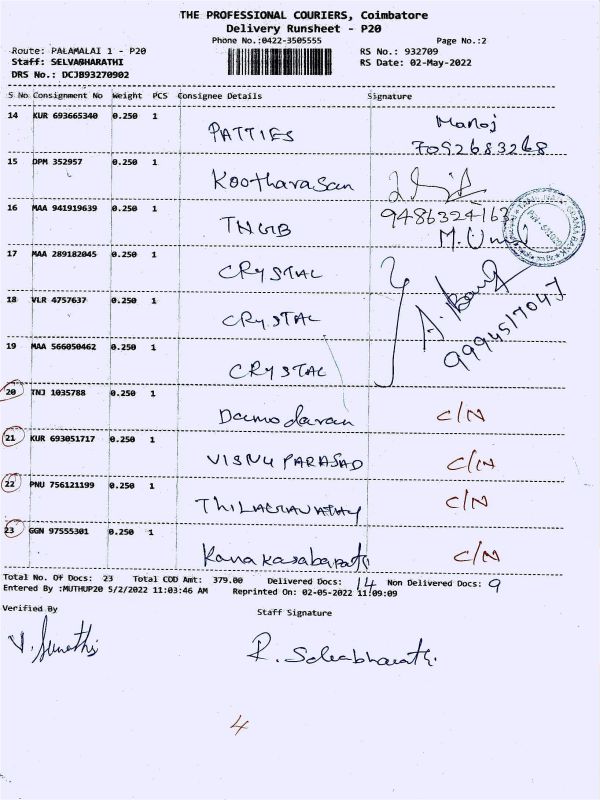 THE PROFESSIONAL COURIERS, Coimbatore
Delivery Runsheet - P20
Phone No.:0422-3505555 Page No.:2
Route: PALAMALAI 1 - P20 RS No.: 932709
Staff: SELVABHARATHI RS Date: 02-May-2022
DRS No.: DCJB93270902
S No Consignment No Weight PCS Consignee Details Signature
14 KUR 693665340 0.250 1 PATTIES Manoj
7092683268
15 DPM 352957 0.250 1 Kootharasan
16 MAA 941919639 0.250 1 TNGB 9486324163
M. Uma
17 MAA 289182045 0.250 1 CRYSTAL
18 VLR 4757637 0.250 1 CRYSTAL
9994517047
19 MAA 566050462 0.250 1 CRYSTAL
20 TNJ 1035788 0.250 Damodaran C/N
21 KUR 693051717 0.250 1 VISNU PARASAD C/N
22 PNU 756121199 0.250 1 THILAGAVATHY C/N
23 GGN 97555301 0.250 1 Kanakasabapathi C/N
Total No. Of Docs: 23 Total COD Amt: 379.00 Delivered Docs: 14 Non Delivered Docs: 9
Entered By :MUTHUP20 5/2/2022 11:03:46 AM Reprinted On: 02-05-2022 11:09:09
Verified By Staff Signature
V. Sumathi R. Selvabharathi
4